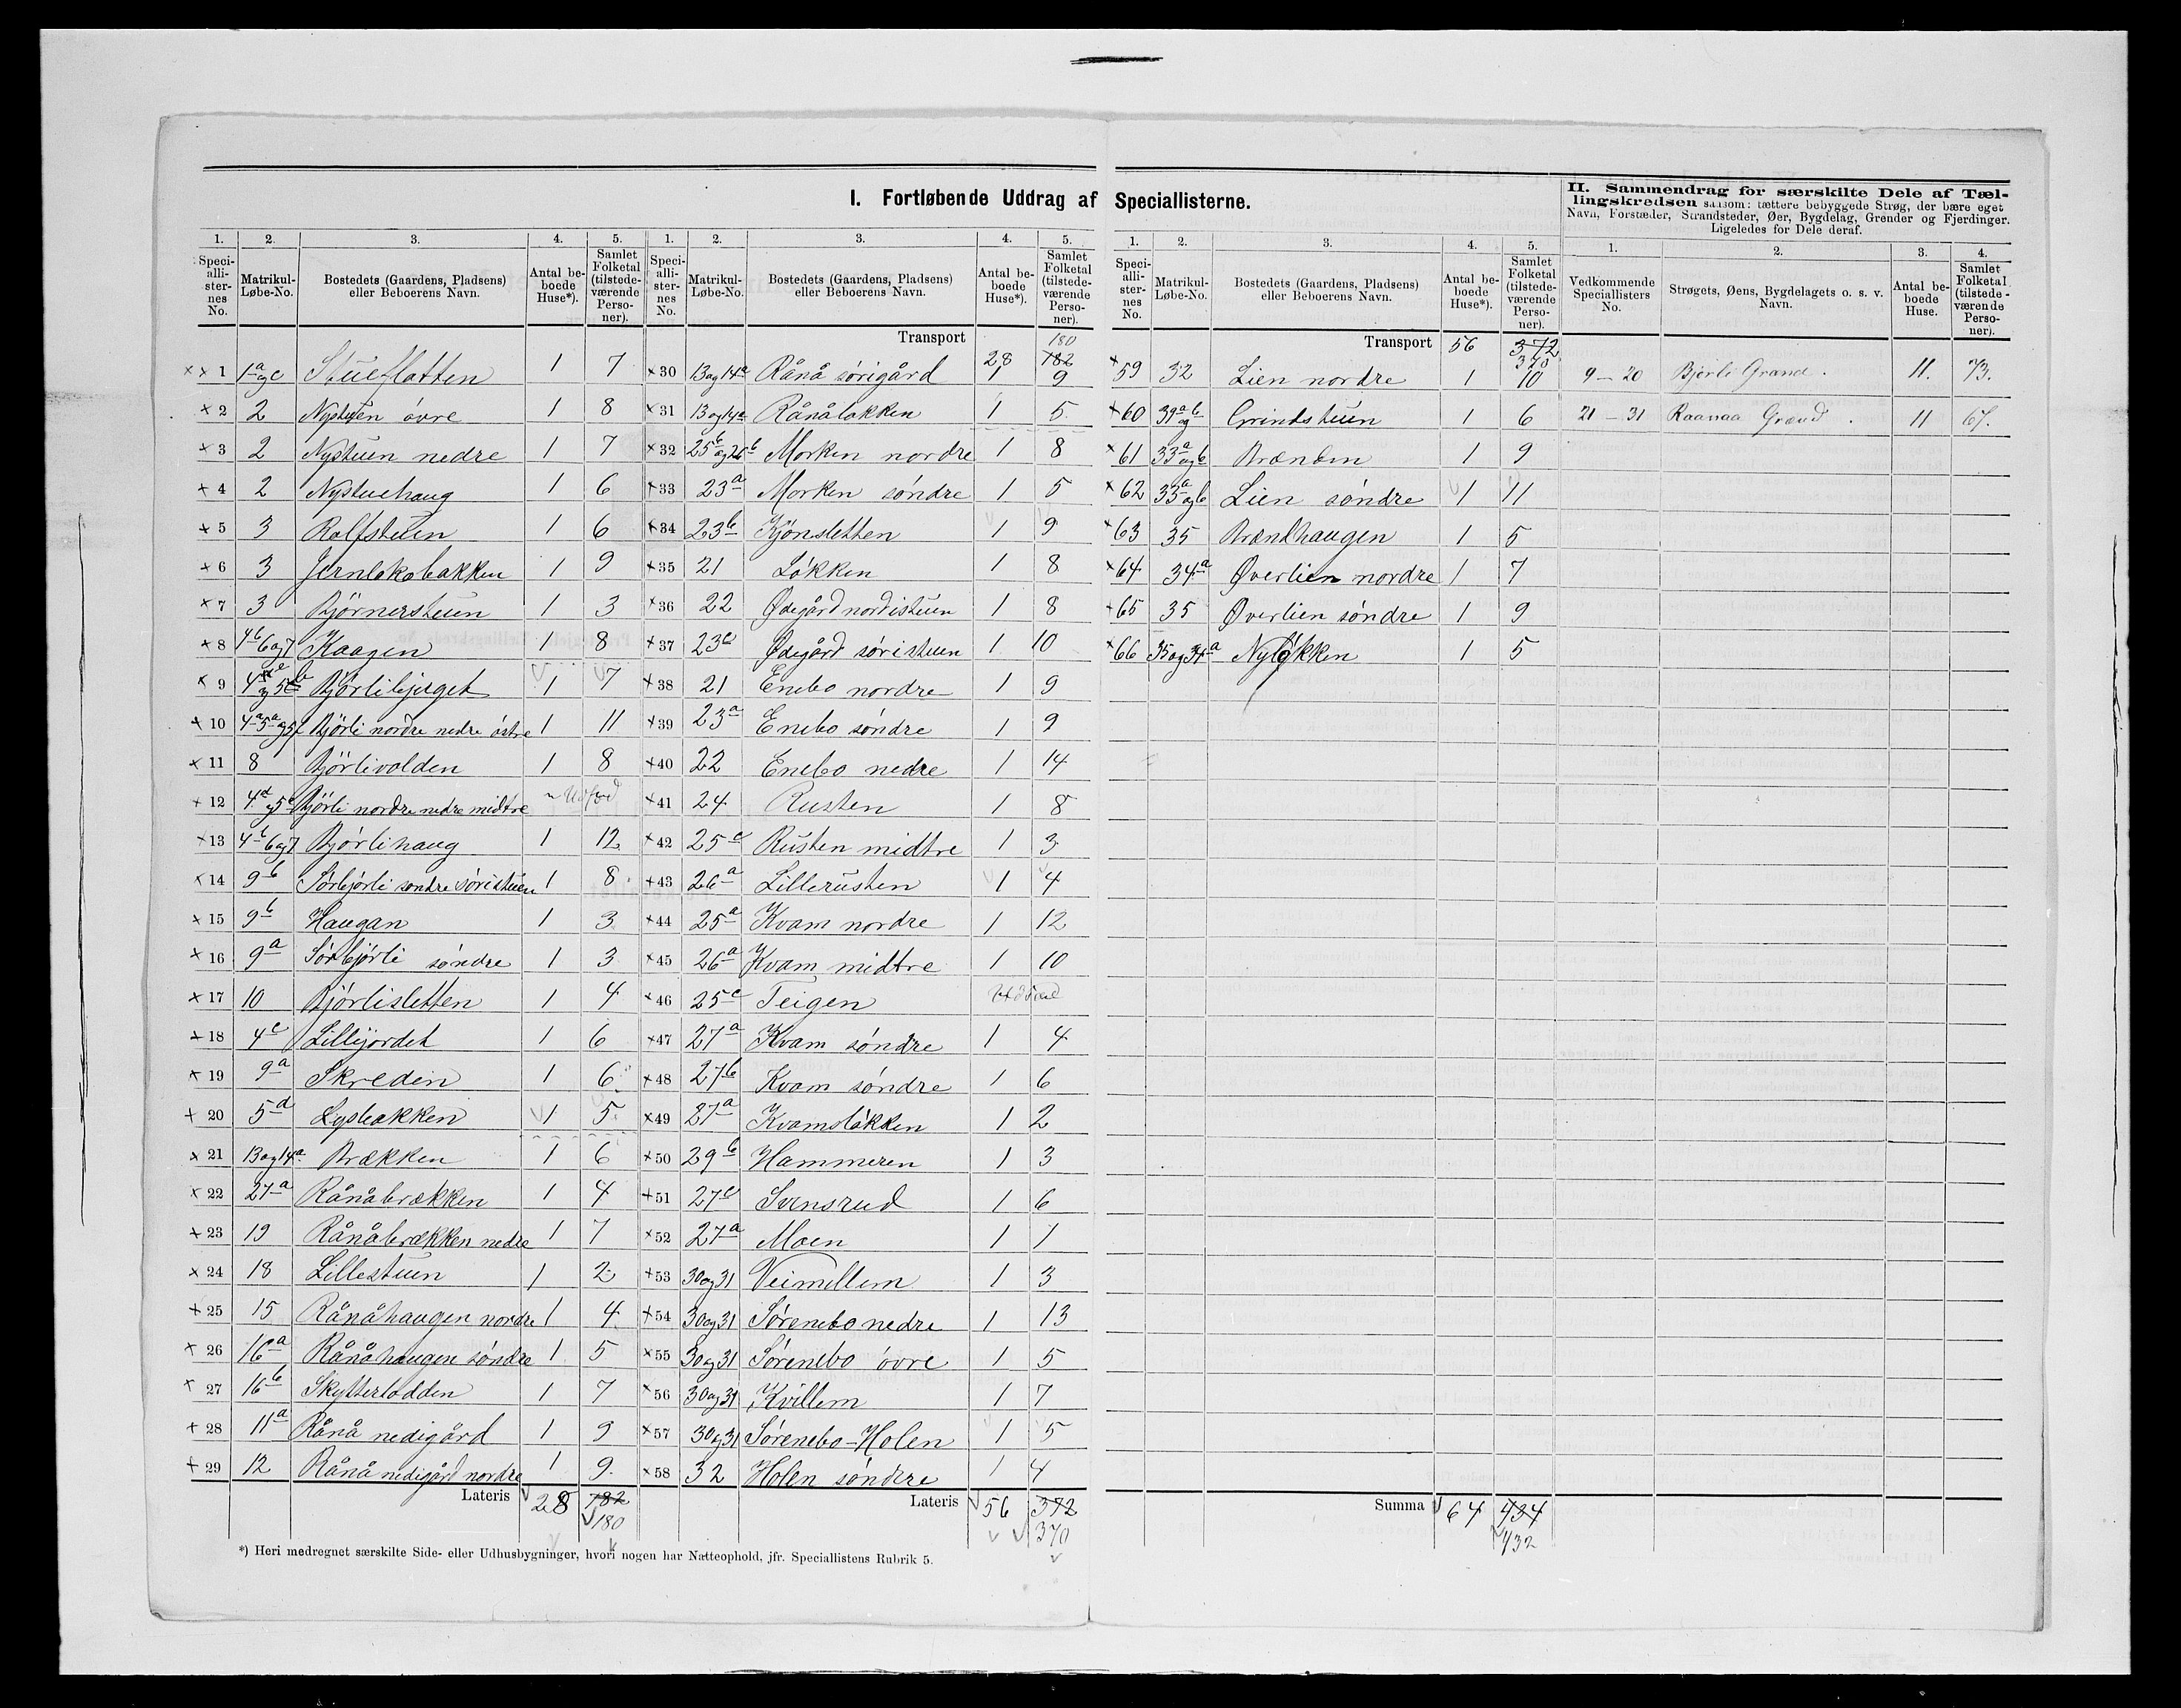 I. Fortløbende Uddrag af Speciallisterne.
1. 2. 3. 4. 5.
Speciallisternes No. Matrikul-Løbe-No. Bostedets (Gaardens, Pladsens) eller Beboerens Navn. Antal beboede Huse*). Samlet Folketal (tilstedeværende Personer).
× × 1 1a og c Stueflotten 1 7
× 2 2 Nystuen övre 1 8
× 3 2 Nystuen nedre 1 7
× 4 2 Nystuehaug 1 6
× 5 3 Rolfstuen 1 6
× 6 3 Jernlokobakken 1 9
× 7 3 Björnerstuen 1 3
× 8 4b 6 og 7 Kaagen 1 8
× 9 Björlibjerget 1 7
× 10 Björli nordre nedre östre 1 11
× 11 8 Björlivolden 1 8
× 12 4d og 5c Björli nordre nedre midtre
× 13 4b 6 og 7 Björlihaug 1 12
× 14 9b Sörbjörli söndre söristuen 1 8
× 15 9b Haugan 1 3
× 16 9a Sörbjörli söndre 1 3
× 17 10 Björlisletten 1 4
× 18 4c Lillijordet 1 6
× 19 9a Skreden 1 6
× 20 5d Lysbakken 1 5
× 21 13 og 14a Brækken 1 6
× 22 27a Rånåbrækken 1 4
× 23 19 Rånåbrækken nedre 1 7
× 24 18 Lillestuen 1 2
× 25 15 Rånåhaugen nordre 1 4
× 26 16a Rånåhaugen söndre 1 5
× 27 16b Skytterlodden 1 7
× 28 11a Rånå nedigård 1 9
× 29 12 Rånå nedigård nordre 1 9
Lateris 28 182
180
*) Heri medregnet særskilte Side- eller Udhusbygninger, hvori nogen har Natteophold, jfr. Speciallistens Rubrik 5.
1. 2. 3. 4. 5.
Speciallisternes No. Matrikul-Løbe-No. Bostedets (Gaardens, Pladsens) eller Beboerens Navn. Antal beboede Huse*). Samlet Folketal (tilstedeværende Personer).
180
Transport 28 182
× 30 13 og 14a Rånå sörigård 1 9
× 31 13 og 14a Rånåløkken 1 5
× 32 25b og 26b Morken nordre 1 8
× 33 23a Morken söndre 1 5
× 34 23b Kjönsletten 1 9
× 35 21 Lökken 1 8
× 36 22 Ødegård nordistuen 1 8
× 37 23c Ødegård söristuen 1 10
× 38 21 Enebo nordre 1 9
× 39 23a Enebo söndre 1 9
× 40 22 Enebo nedre 1 14
× 41 24 Rusten 1 8
× 42 25c Rusten midtre 1 3
× 43 26a Lillerusten 1 4
× 44 25a Kvam nordre 1 12
× 45 26a Kvam midtre 1 10
× 46 25c Teigen
× 47 27a Kvam söndre 1 4
× 48 27b Kvam söndre 1 6
× 49 27a Kvamslökken 1 2
× 50 29b Hammeren 1 3
× 51 27c Svensrud 1 6
× 52 27a Moen 1 1
× 53 30 og 31 Veimellem 1 3
× 54 30 og 31 Sörenebo nedre 1 13
× 55 30 og 31 Sörenebo övre 1 5
× 56 30 og 31 Kvillem 1 7
× 57 30 og 31 Sörenebo-Holen 1 5
× 58 32 Holen söndre 1 4
Lateris 56 372
370
1. 2. 3. 4. 5.
Speciallisternes No. Matrikul-Løbe-No. Bostedets (Gaardens, Pladsens) eller Beboerens Navn. Antal beboede Huse*). Samlet Folketal (tilstedeværende Personer).
Transport 56 372
370
× 59 32 Lien nordre 1 10
× 60 39a og b Grindstuen 1 6
× 61 33a og b Brænden 1 9
× 62 33a og b Lien söndre 1 11
× 63 35 Brændhaugen 1 5
× 64 34a Øverlien nordre 1 7
× 65 35 Øverlien söndre 1 9
× 66 35 og 34a Nylökken 1 5
Summa 64 434
432
II. Sammendrag for særskilte Dele af Tællingskredsen saasom: tættere bebyggede Strøg, der bære eget Navn, Forstæder, Strandsteder, Øer, Bygdelag, Grender og Fjerdinger. Ligeledes for Dele deraf.
1. 2. 3. 4.
Vedkommende Speciallisters No. Strøgets, Øens, Bygdelagets o. s. v. Navn. Antal beboede Huse. Samlet Folketal (tilstedeværende Personer).
9 – 20 Bjørli Grænd. 11. 73.
21 – 31 Raanaa Grænd. 11 67.